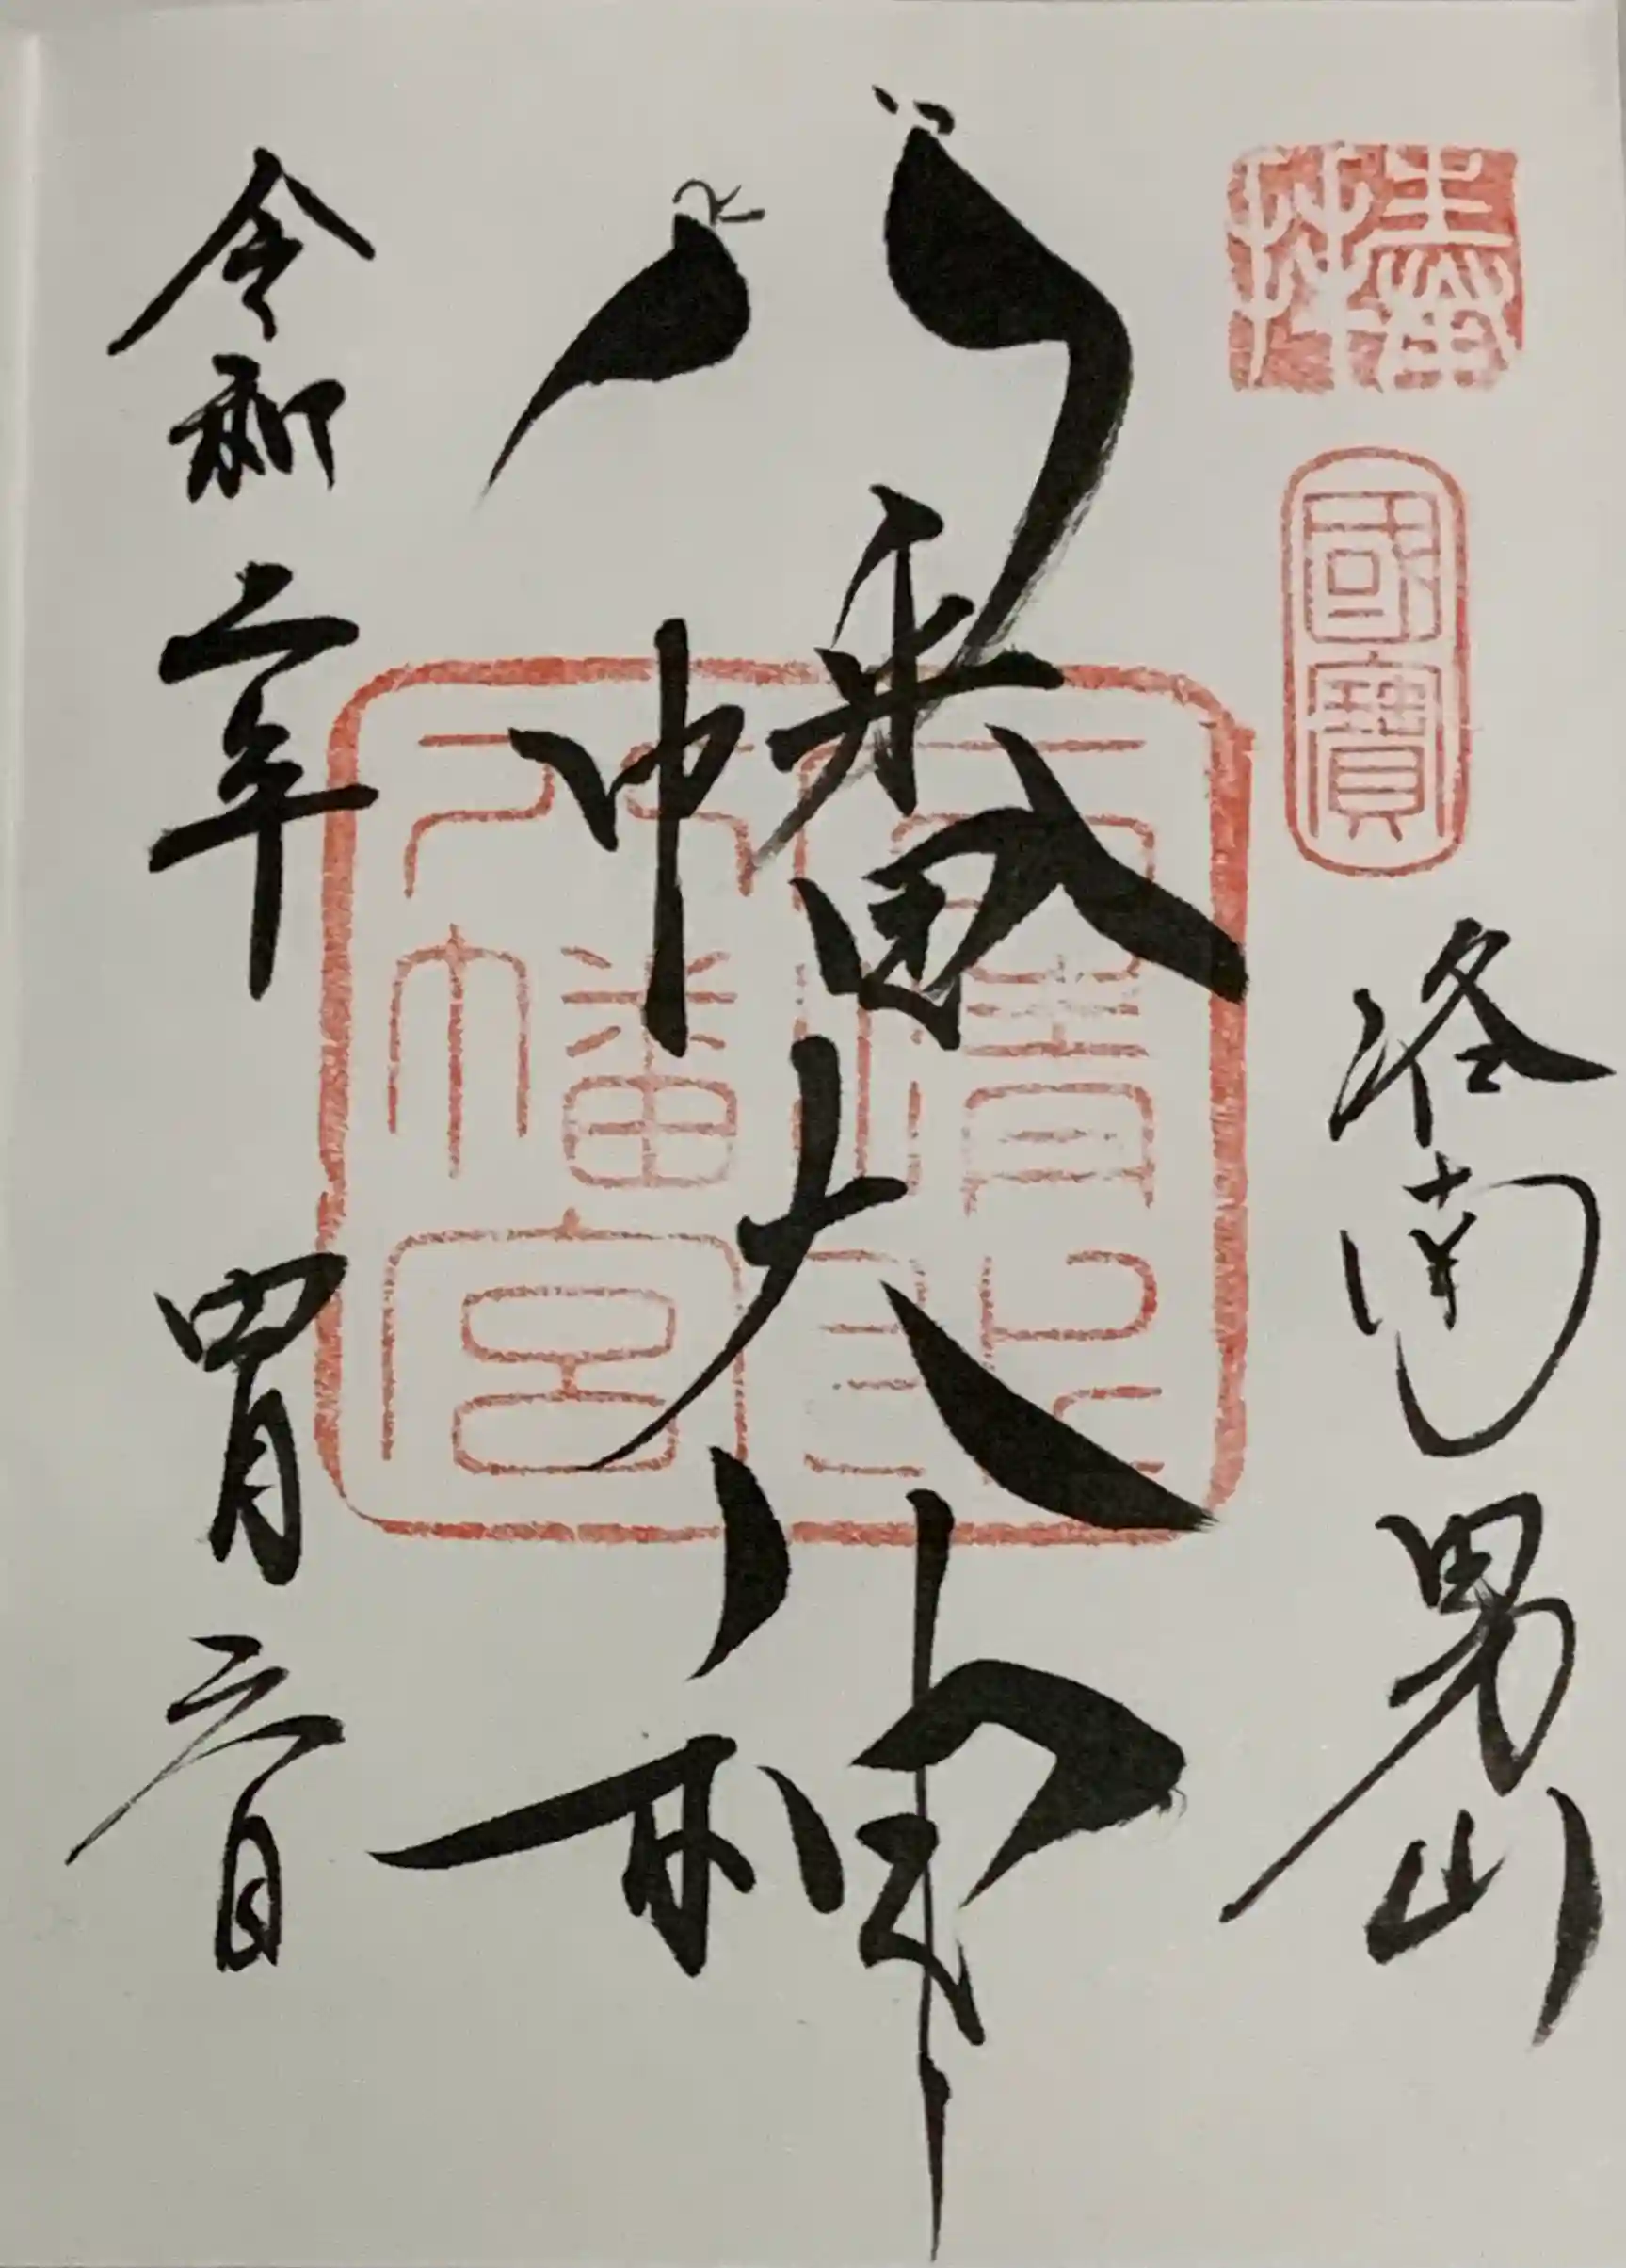 奉拝
國寶
洛南男山
八幡大神
石清水八幡宮
令和二年 四月六日